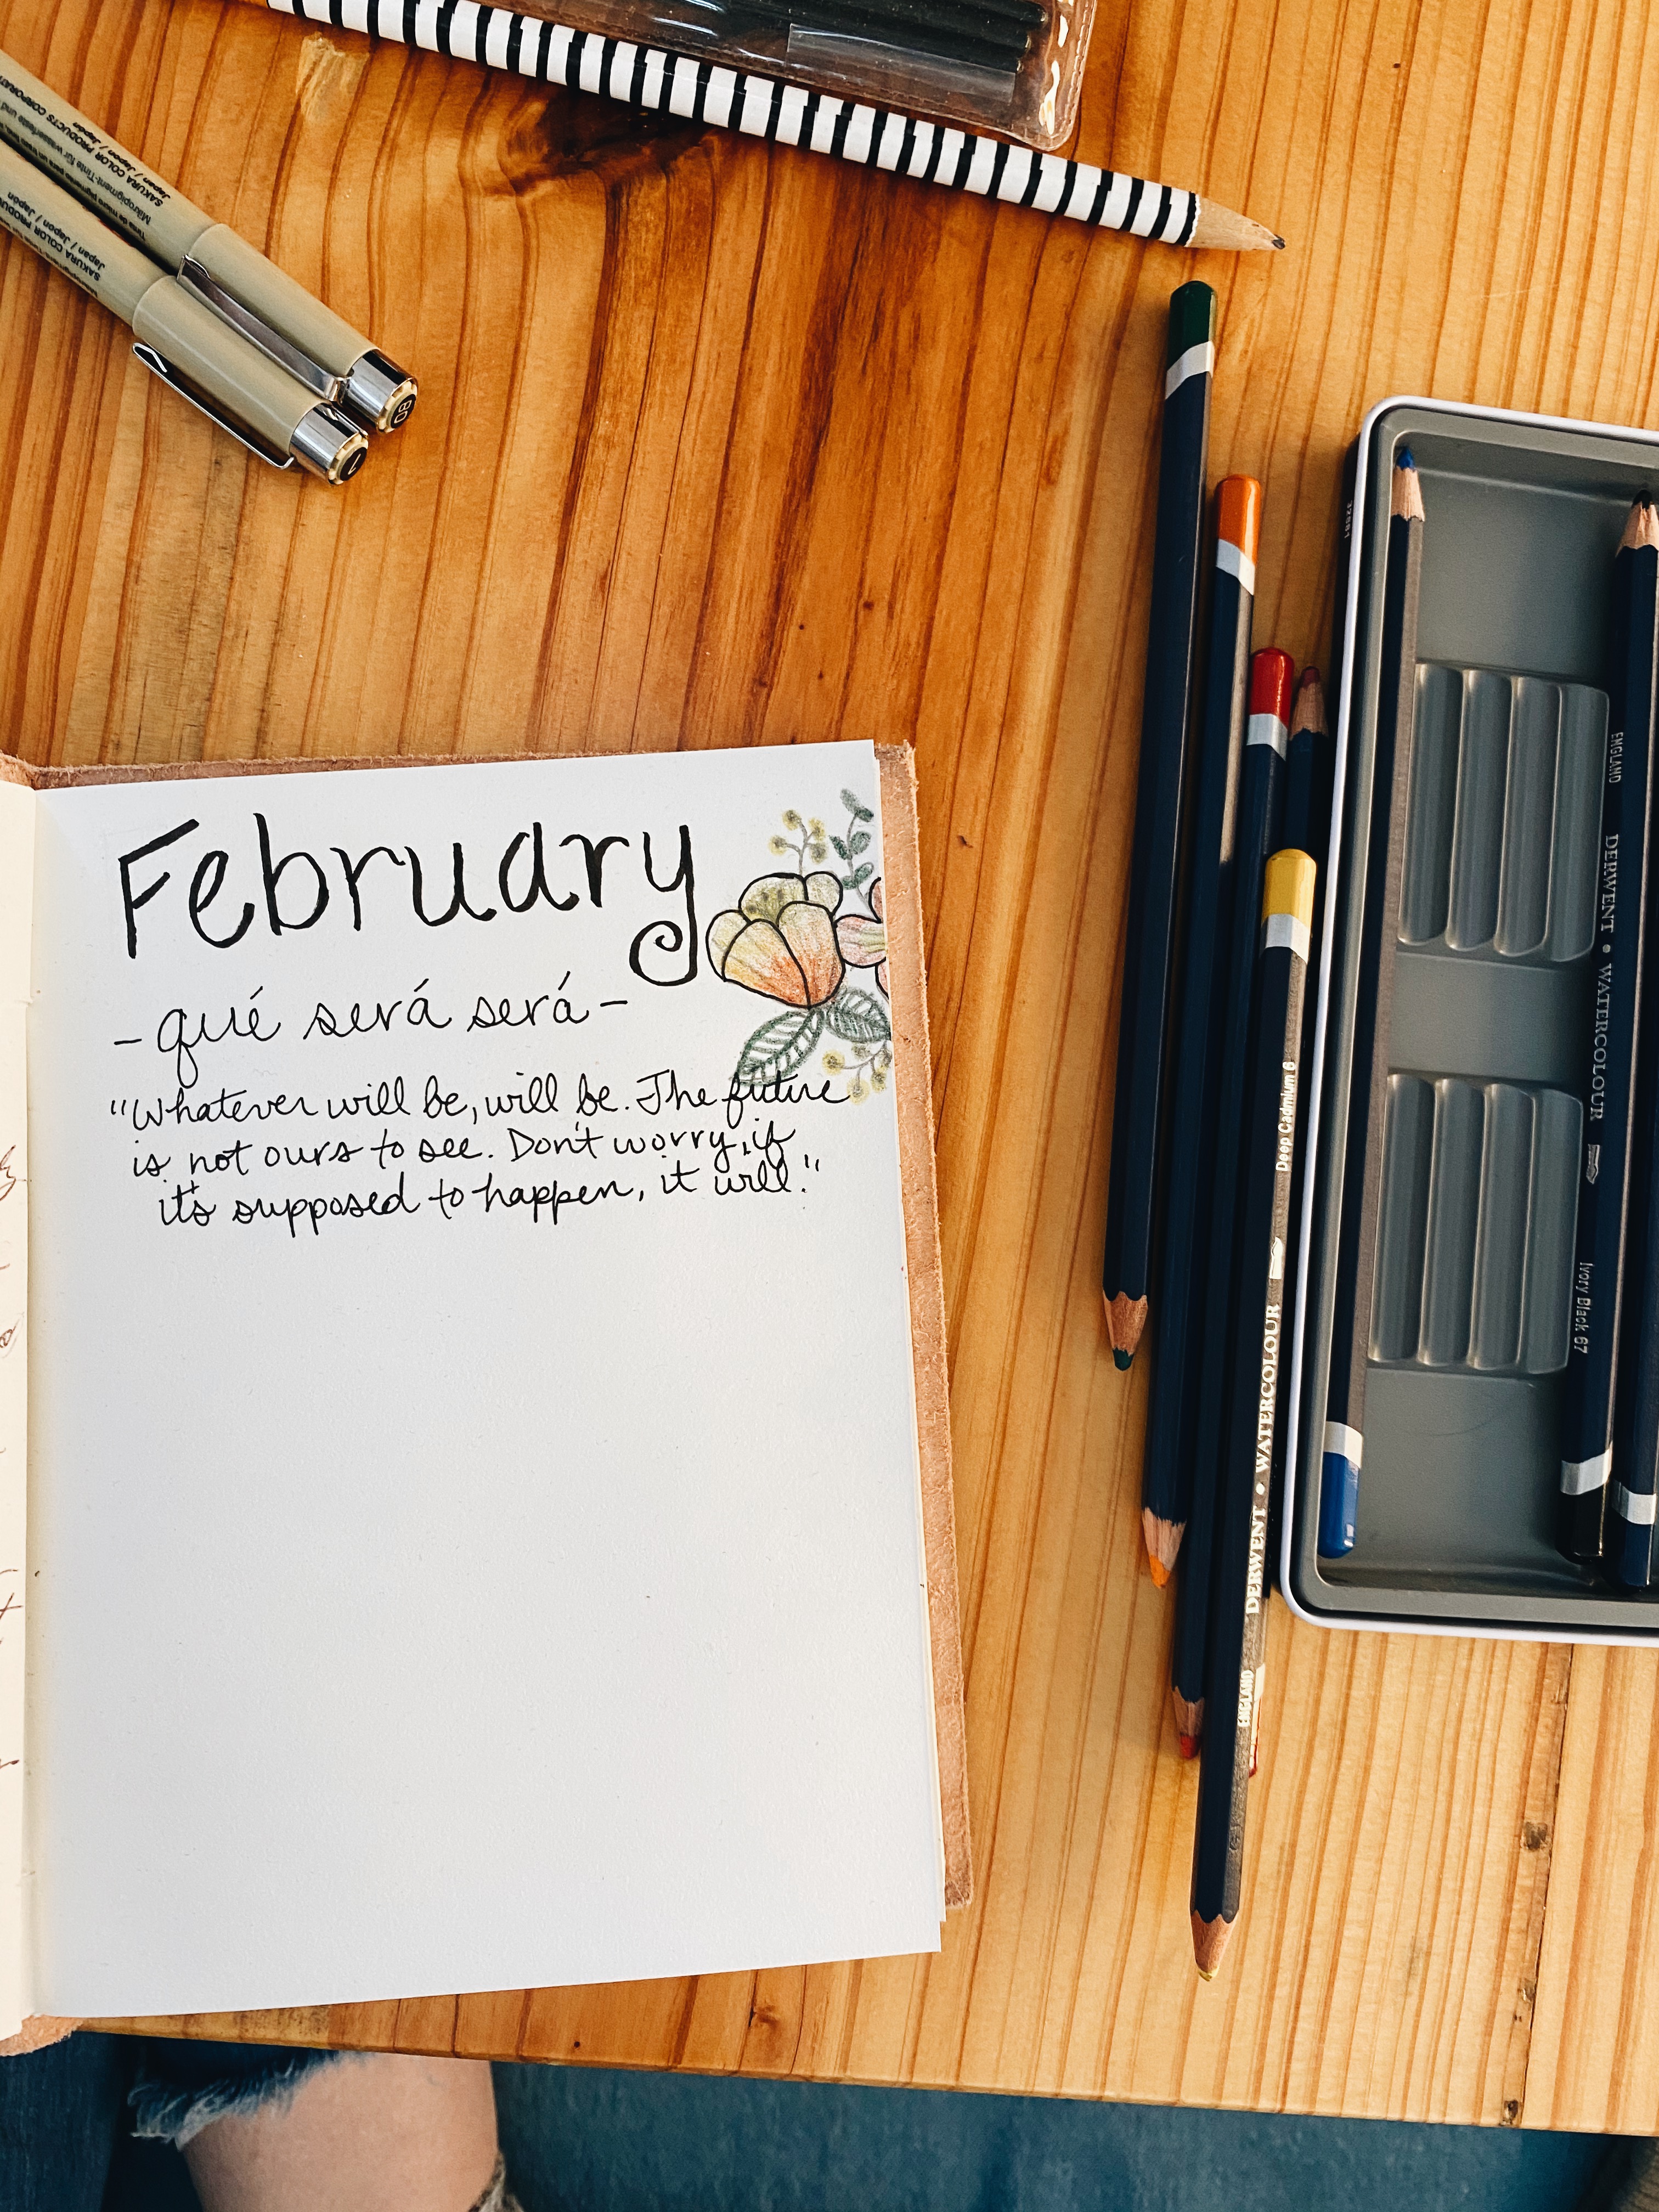 SAKURA COLOR PRODUCTS CORPORATION
Japan / Japon / Japón
Mikropigment-Tinte für wasserfeste und
SAKURA COLOR PRODUCTS
Japan / Japon / Japón
08
1
February
- qué será será -
"Whatever will be, will be. The future
is not ours to see. Don't worry, if
it's supposed to happen, it will."
Deep Cadmium 6
DERWENT • WATERCOLOUR
ENGLAND
ENGLAND
DERWENT • WATERCOLOUR
Ivory Black 67